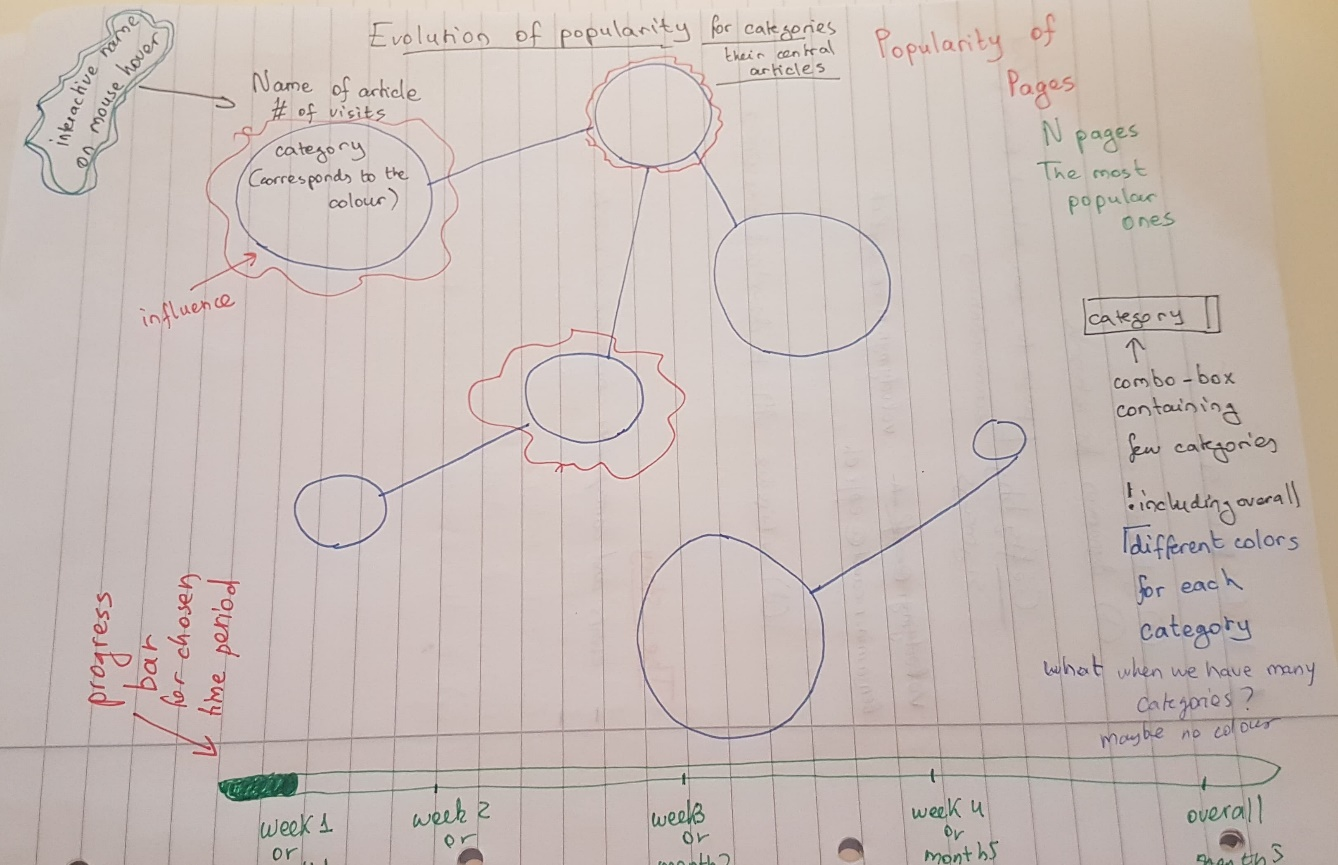 interactive name
on mouse hover
Evolution of popularity for categories
their central
articles
Popularity of
Pages
N pages
The most
popular
ones
Name of article
# of visits
category
(corresponds to the
colour)
influence
category
combo-box
containing
few categories
! including overall
different colors
for each
category
What when we have many
categories?
maybe no colour
progress
bar
for chosen
time period
week 1
or
week 2
or
week3
or
week 4
or
months
overall